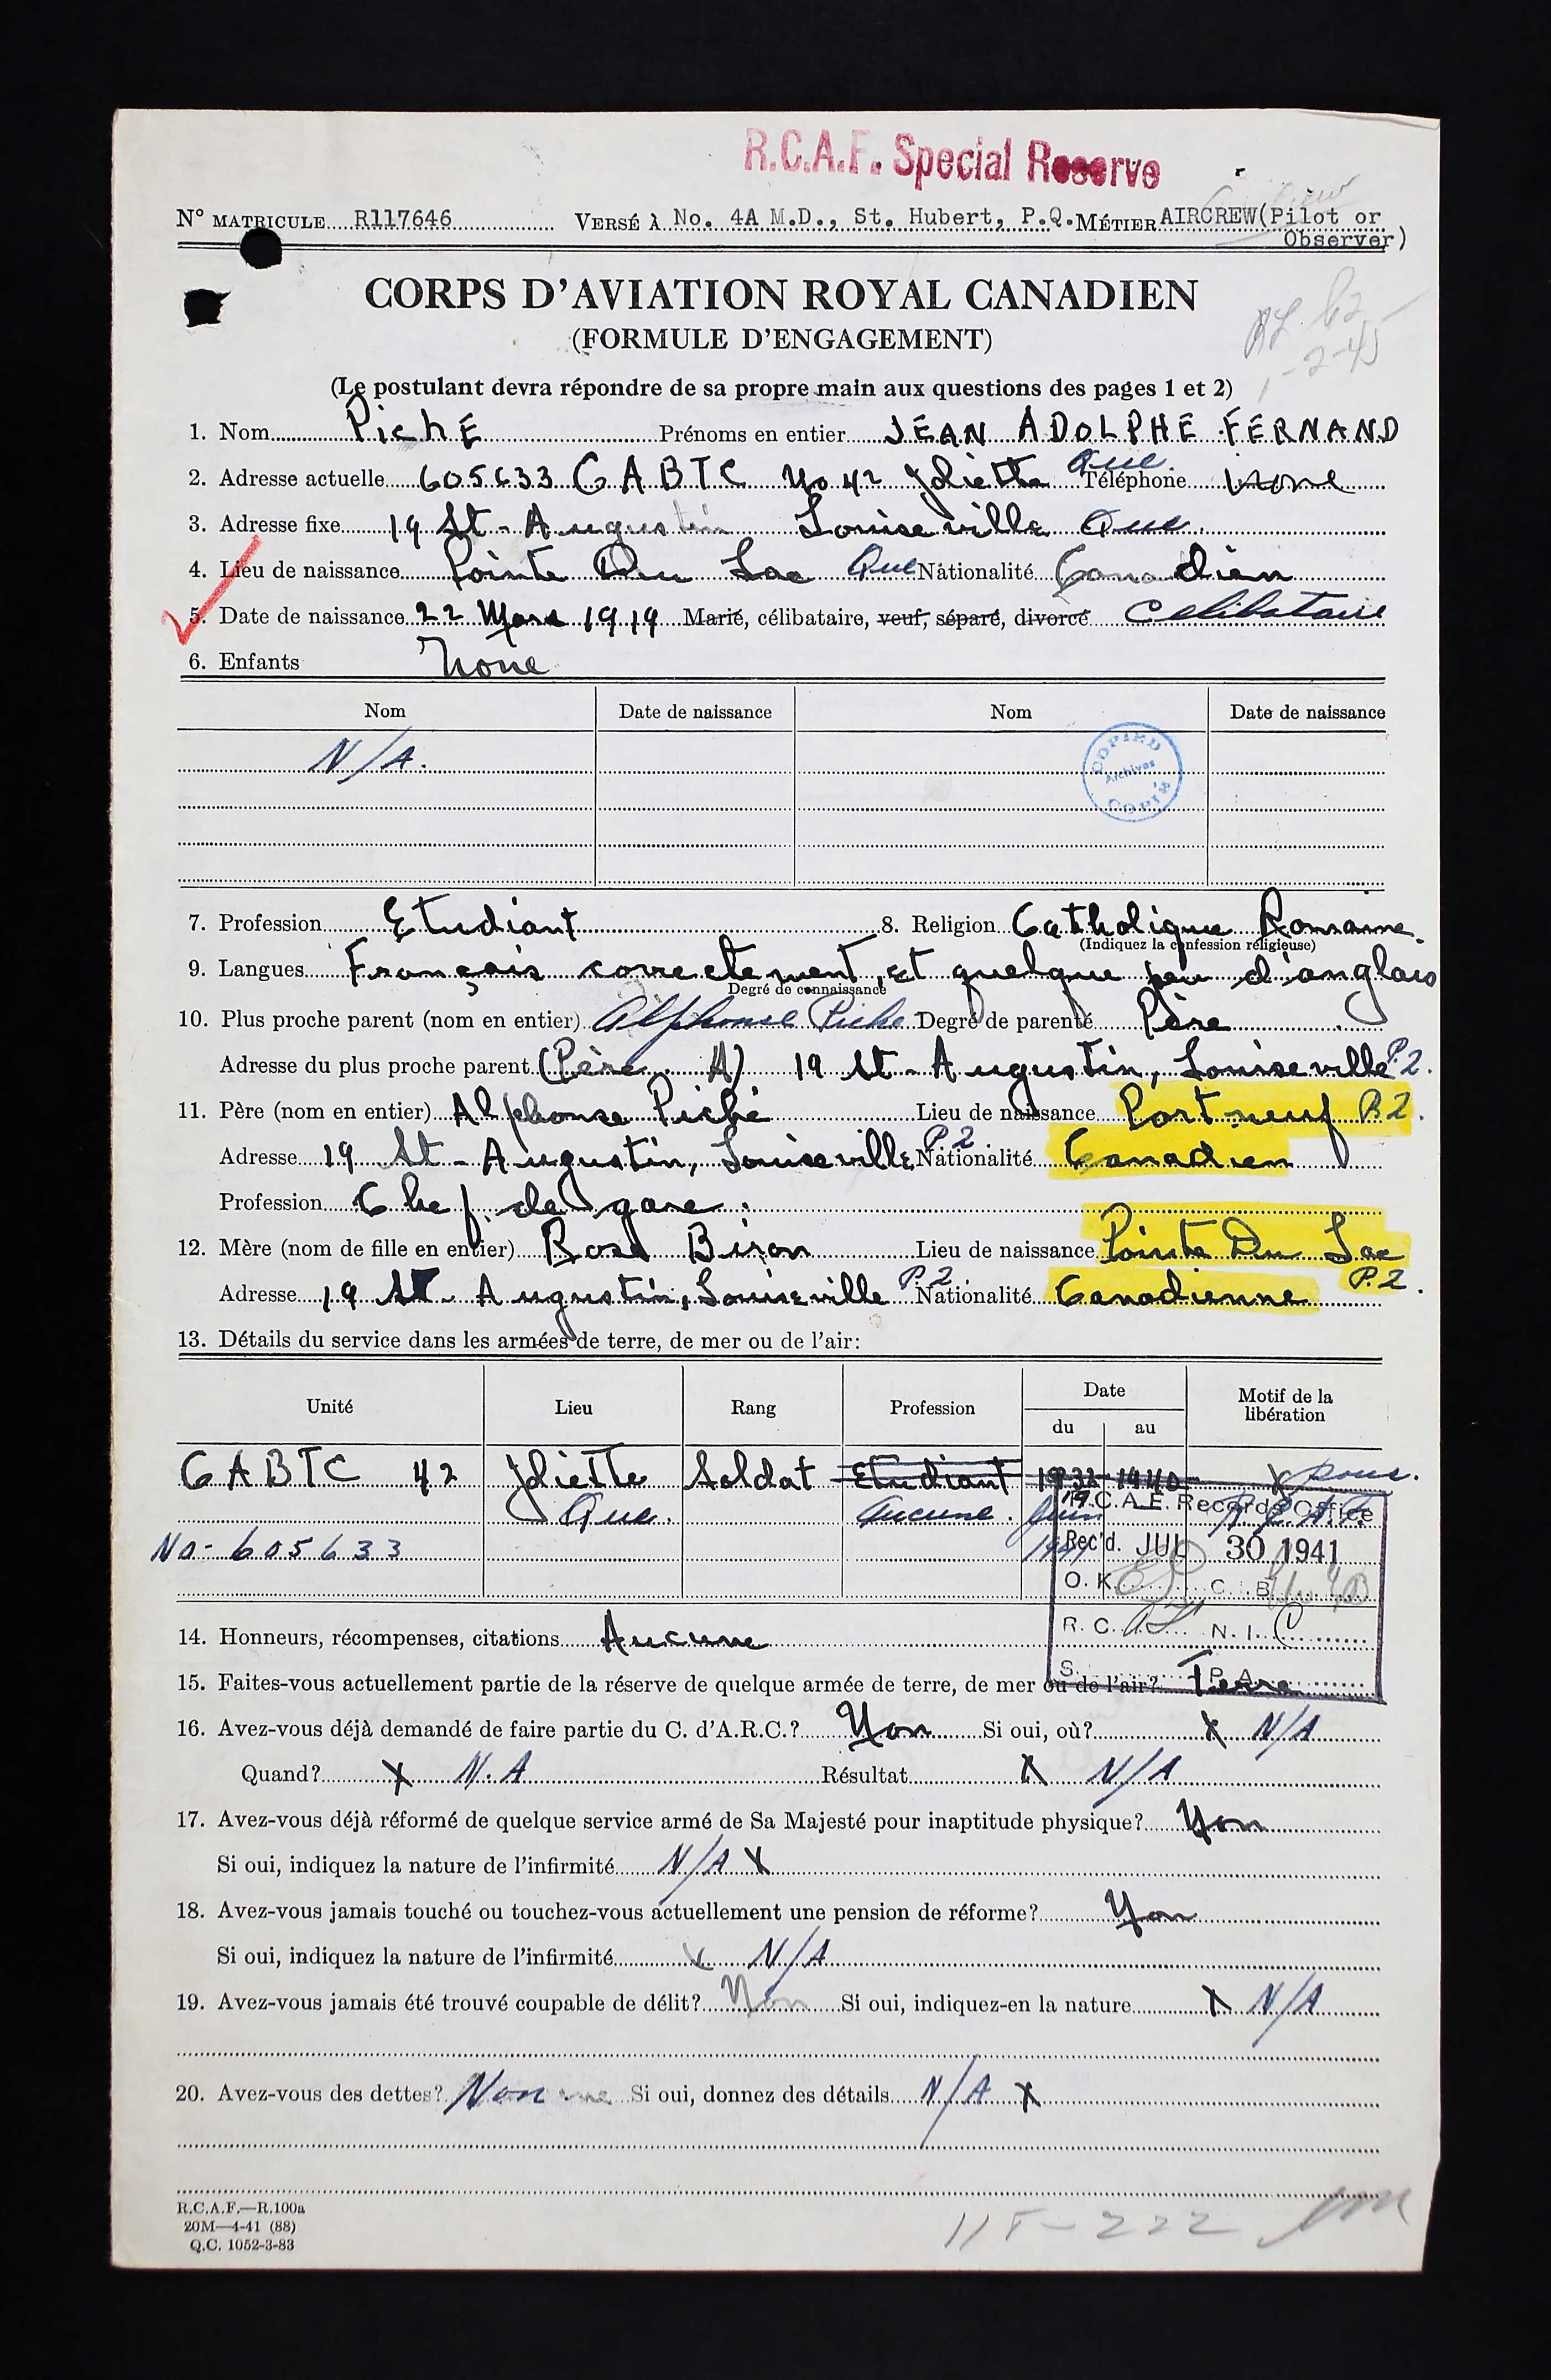 R.C.A.F. Special Reserve
N° MATRICULE R117646 VERSÉ À No. 4A M.D., St. Hubert, P.Q. MÉTIER AIRCREW(Pilot or
Observer)
CORPS D'AVIATION ROYAL CANADIEN
(FORMULE D'ENGAGEMENT)
(Le postulant devra répondre de sa propre main aux questions des pages 1 et 2)
1. Nom PichE Prénoms en entier JEAN ADOLPHE FERNAND
2. Adresse actuelle 605633 CABTC No 42 Joliette Que. Téléphone None
3. Adresse fixe 19 St-Augustin Louiseville Que.
4. Lieu de naissance Pointe Du Lac Que Nationalité Canadien
5. Date de naissance 22 Mars 1919 Marié, célibataire, veuf, séparé, divorcé Celibataire
6. Enfants None
Nom Date de naissance Nom Date de naissance
N/A.
COPIED Archives COPIÉ
7. Profession Etudiant 8. Religion Catholique Romaine.
(Indiquez la confession religieuse)
9. Langues Français correctement, et quelque peu d'anglais
Degré de connaissance
10. Plus proche parent (nom en entier) Alphonse Piche Degré de parenté Père
Adresse du plus proche parent (Père A) 19 St-Augustin, Louiseville P.2.
11. Père (nom en entier) Alphonse Piché Lieu de naissance Portneuf P.2.
Adresse 19 St-Augustin, Louiseville P.2. Nationalité Canadien
Profession Chef de gare
12. Mère (nom de fille en entier) Rosa Biron Lieu de naissance Pointe Du Lac
P.2.
Adresse 19 St-Augustin, Louiseville P.2. Nationalité Canadienne
13. Détails du service dans les armées de terre, de mer ou de l'air:
Unité Lieu Rang Profession Date Motif de la libération
du au
CABTC 42 Joliette Soldat Etudiant 1932 1940 X
Que. Aucune. Juin 1941
No- 605633
R.C.A.F. Records Office
Rec'd. JUL 30 1941
O.K. C.B.
R.C. N.I.
S. P.A.
14. Honneurs, récompenses, citations Aucune
15. Faites-vous actuellement partie de la réserve de quelque armée de terre, de mer ou de l'air? Terre
16. Avez-vous déjà demandé de faire partie du C. d'A.R.C.? Non Si oui, où? X N/A
Quand? X N.A Résultat X N/A
17. Avez-vous déjà réformé de quelque service armé de Sa Majesté pour inaptitude physique? Non
Si oui, indiquez la nature de l'infirmité N/A X
18. Avez-vous jamais touché ou touchez-vous actuellement une pension de réforme? Non
Si oui, indiquez la nature de l'infirmité X N/A
19. Avez-vous jamais été trouvé coupable de délit? Non Si oui, indiquez-en la nature X N/A
20. Avez-vous des dettes? Non Si oui, donnez des détails N/A X
R.C.A.F.—R.100a
20M—4-41 (88)
Q.C. 1052-3-83